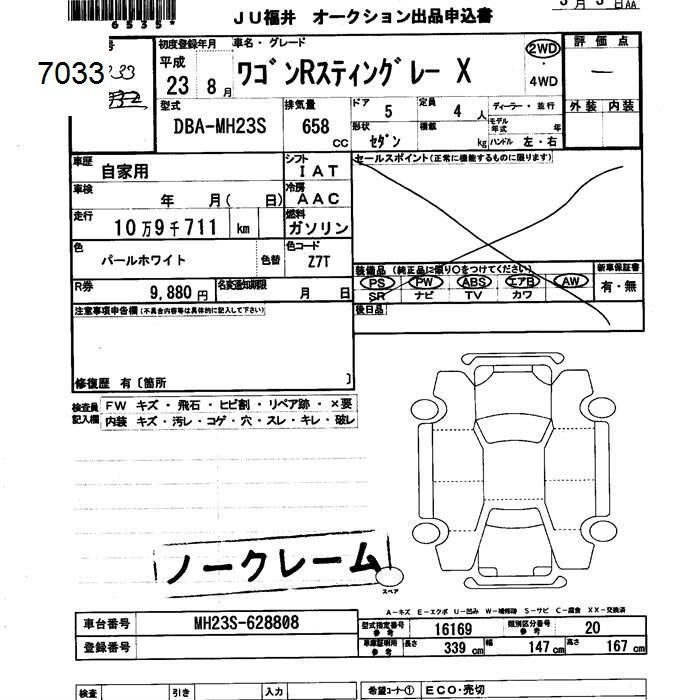 6535*
3月5日AA
JU福井 オークション出品申込書
7033
初度登録年月 車名・グレード 2WD 評価点
平成 23 8月 ワゴンRスティングレー X ・ 4WD ー
型式 排気量 ドア 5 定員 4人 ディーラー・並行 外装 内装
DBA-MH23S 658 CC 形状 セダン 積載 kg モデル年式 年 ハンドル 左・右
車歴 自家用 シフト IAT セールスポイント(正常に機能するものに限ります)
車検 年 月( 日) 冷房 AAC
走行 10万9千711 km 燃料 ガソリン
色 パールホワイト 色替 色コード Z7T
装備品(純正品に限り○をつけてください) 新車保証書
PS PW ABS エアB AW 有・無
SR ナビ TV カワ
R券 9,880円 名変通知期限 月 日
後日品
注意事項申告欄(不具合内容等は具体的に記入して下さい)
修復歴 有〔箇所 〕
検査員記入欄 FW キズ・飛石・ヒビ割・リペア跡・×要
内装 キズ・汚レ・コゲ・穴・スレ・キレ・破レ
ノークレーム
スペア
A-キズ E-エクボ U-凹み W-補修跡 S-サビ C-腐食 XX-交換済
車台番号 MH23S-628808 型式指定番号 参考 16169 類別区分番号 参考 20
登録番号 車庫証明用 参考 長さ 339 cm 幅 147 cm 高さ 167 cm
検査 引き 入力 希望コーナー① ECO・売切